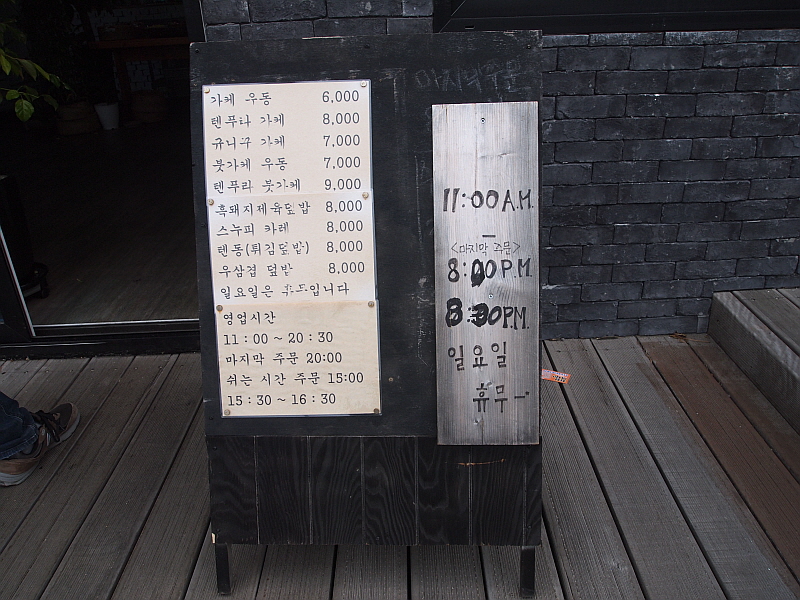 가케 우동 6,000
텐푸라 가케 8,000
규니구 가케 7,000
붓가케 우동 7,000
텐푸라 붓가케 9,000
흑돼지제육덮밥 8,000
스누피 카레 8,000
텐동(튀김덮밥) 8,000
우삼겹 덮밥 8,000
일요일은 휴무입니다
영업시간
11:00 ~ 20:30
마지막 주문 20:00
쉬는 시간 주문 15:00
15:30 ~ 16:30
11:00 A.M.
<마지막 주문>
8:00 P.M.
8:30 P.M.
일요일
휴무